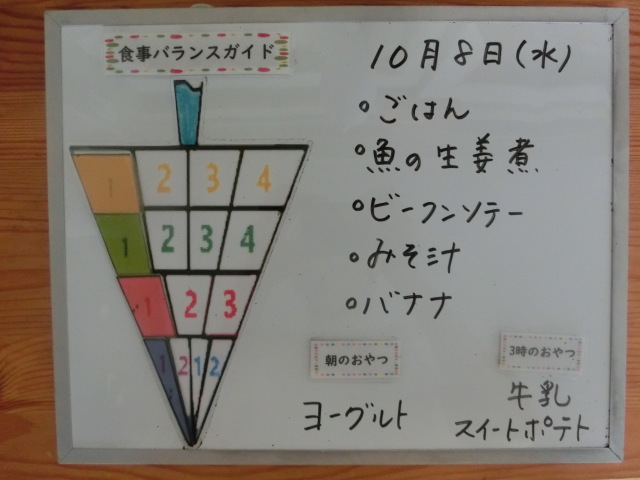 食事バランスガイド
10月8日(水)
ごはん
魚の生姜煮
ビーフンソテー
みそ汁
バナナ
1 2 3 4
1 2 3 4
1 2 3
1 2 1 2
朝のおやつ
ヨーグルト
3時のおやつ
牛乳
スイートポテト